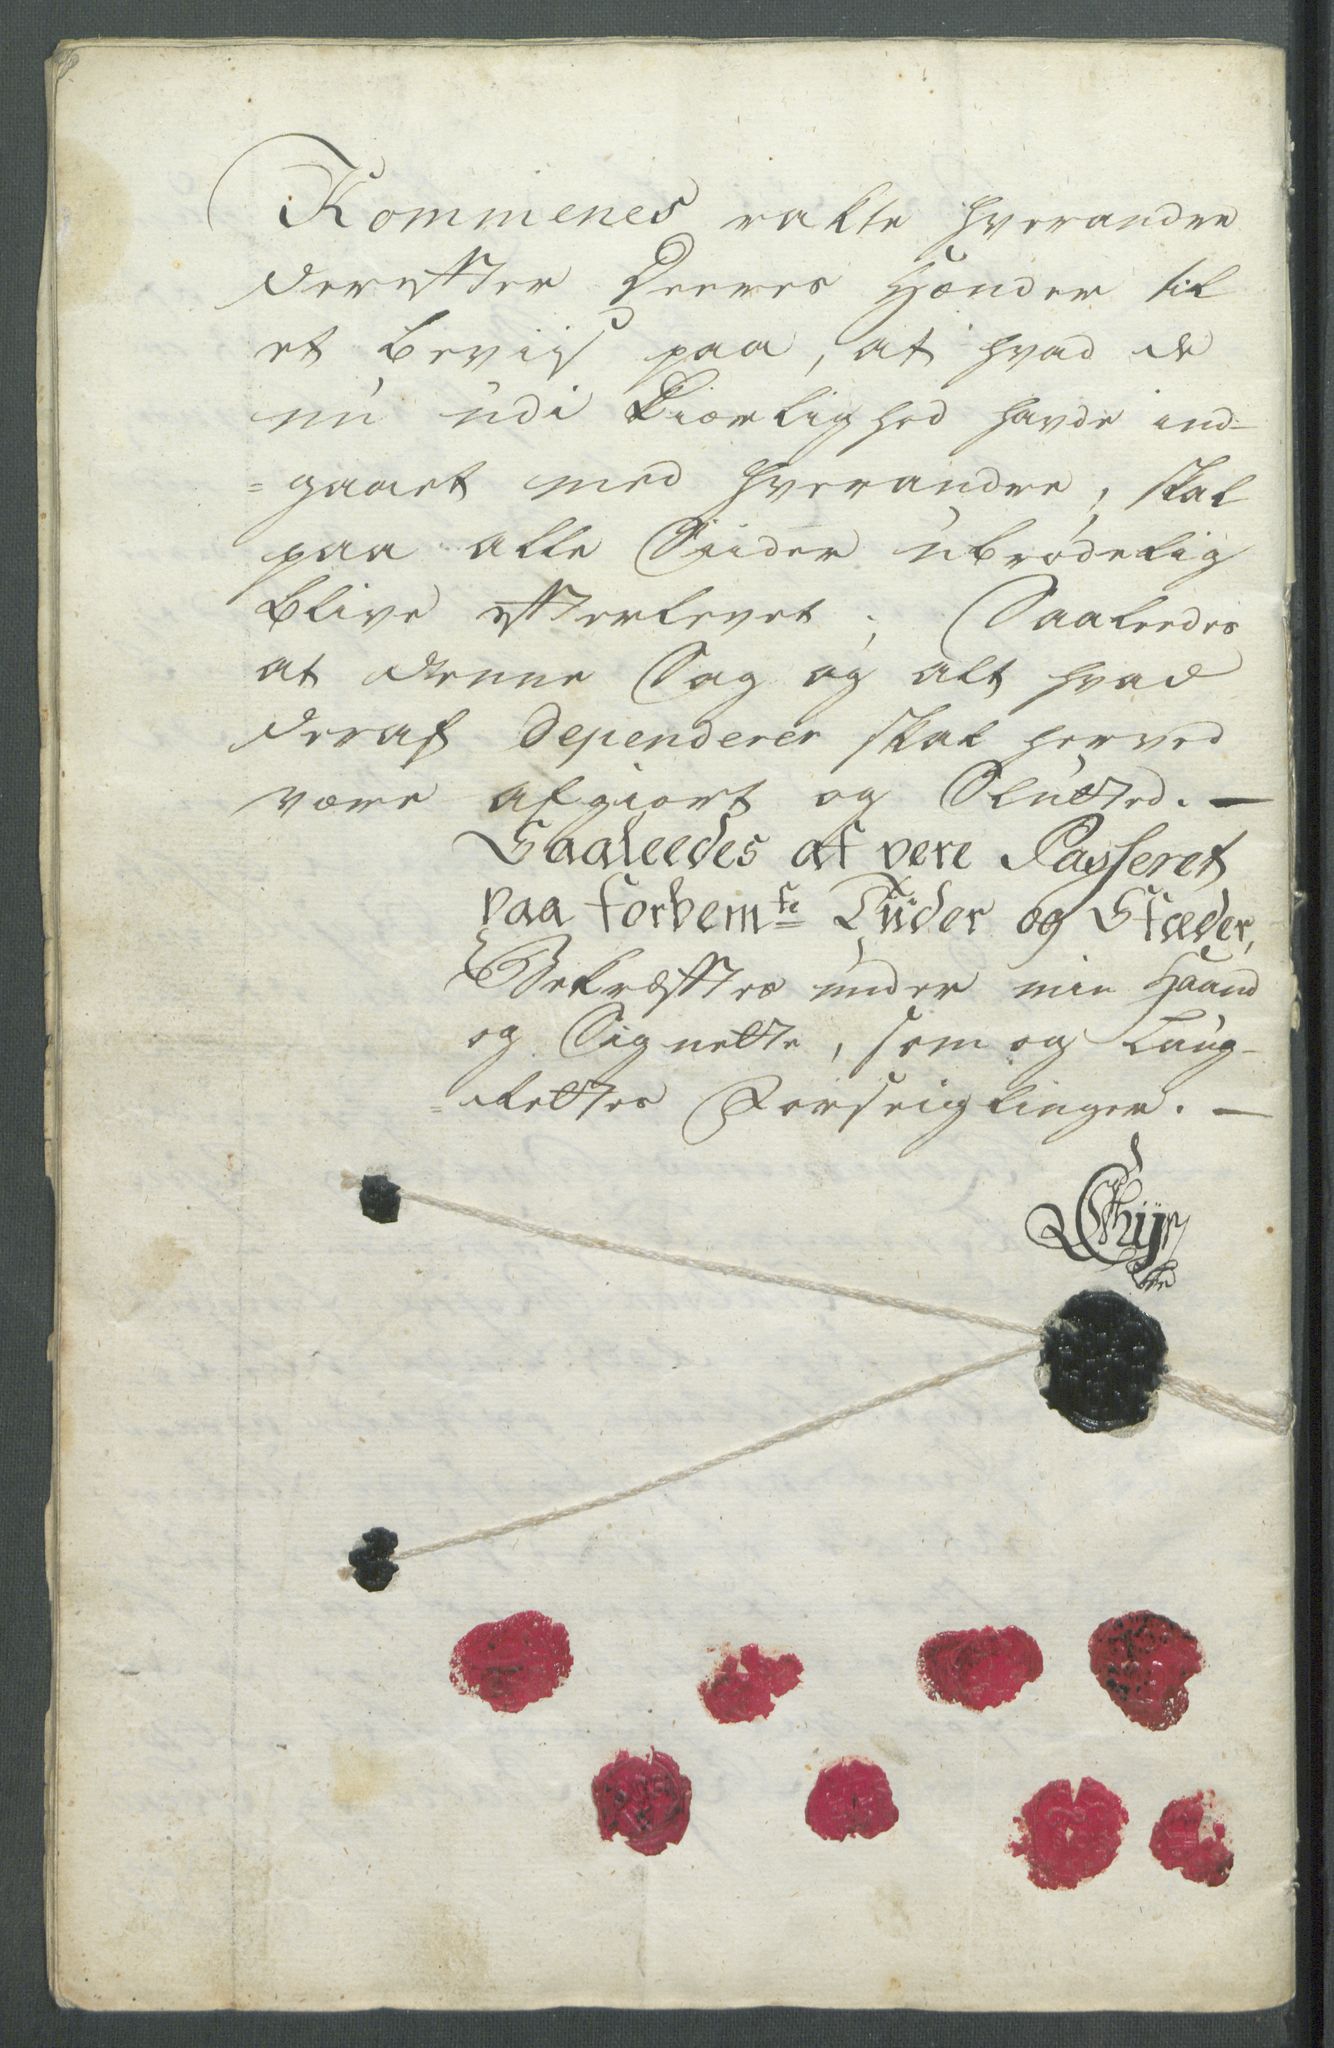 Kommenes rakte hverandre
derefter Deeres Hænder til
et beviis paa, at hvad de
nu udi Kiærlighed havde ind-
=gaaet med hverandre, skal
paa alle Siider ubrødelig
blive efterlevet; Saaleedes
at denne Sag og alt hvad
deraf dependerer skal herved
være afgiort og Slutted. —
Saaleedes at vere Passeret
paa forbemte Tiider og Stæder,
Bekræfftes under min Haand
og Signette, som og Laug-
=rettes Forseiglinger. —